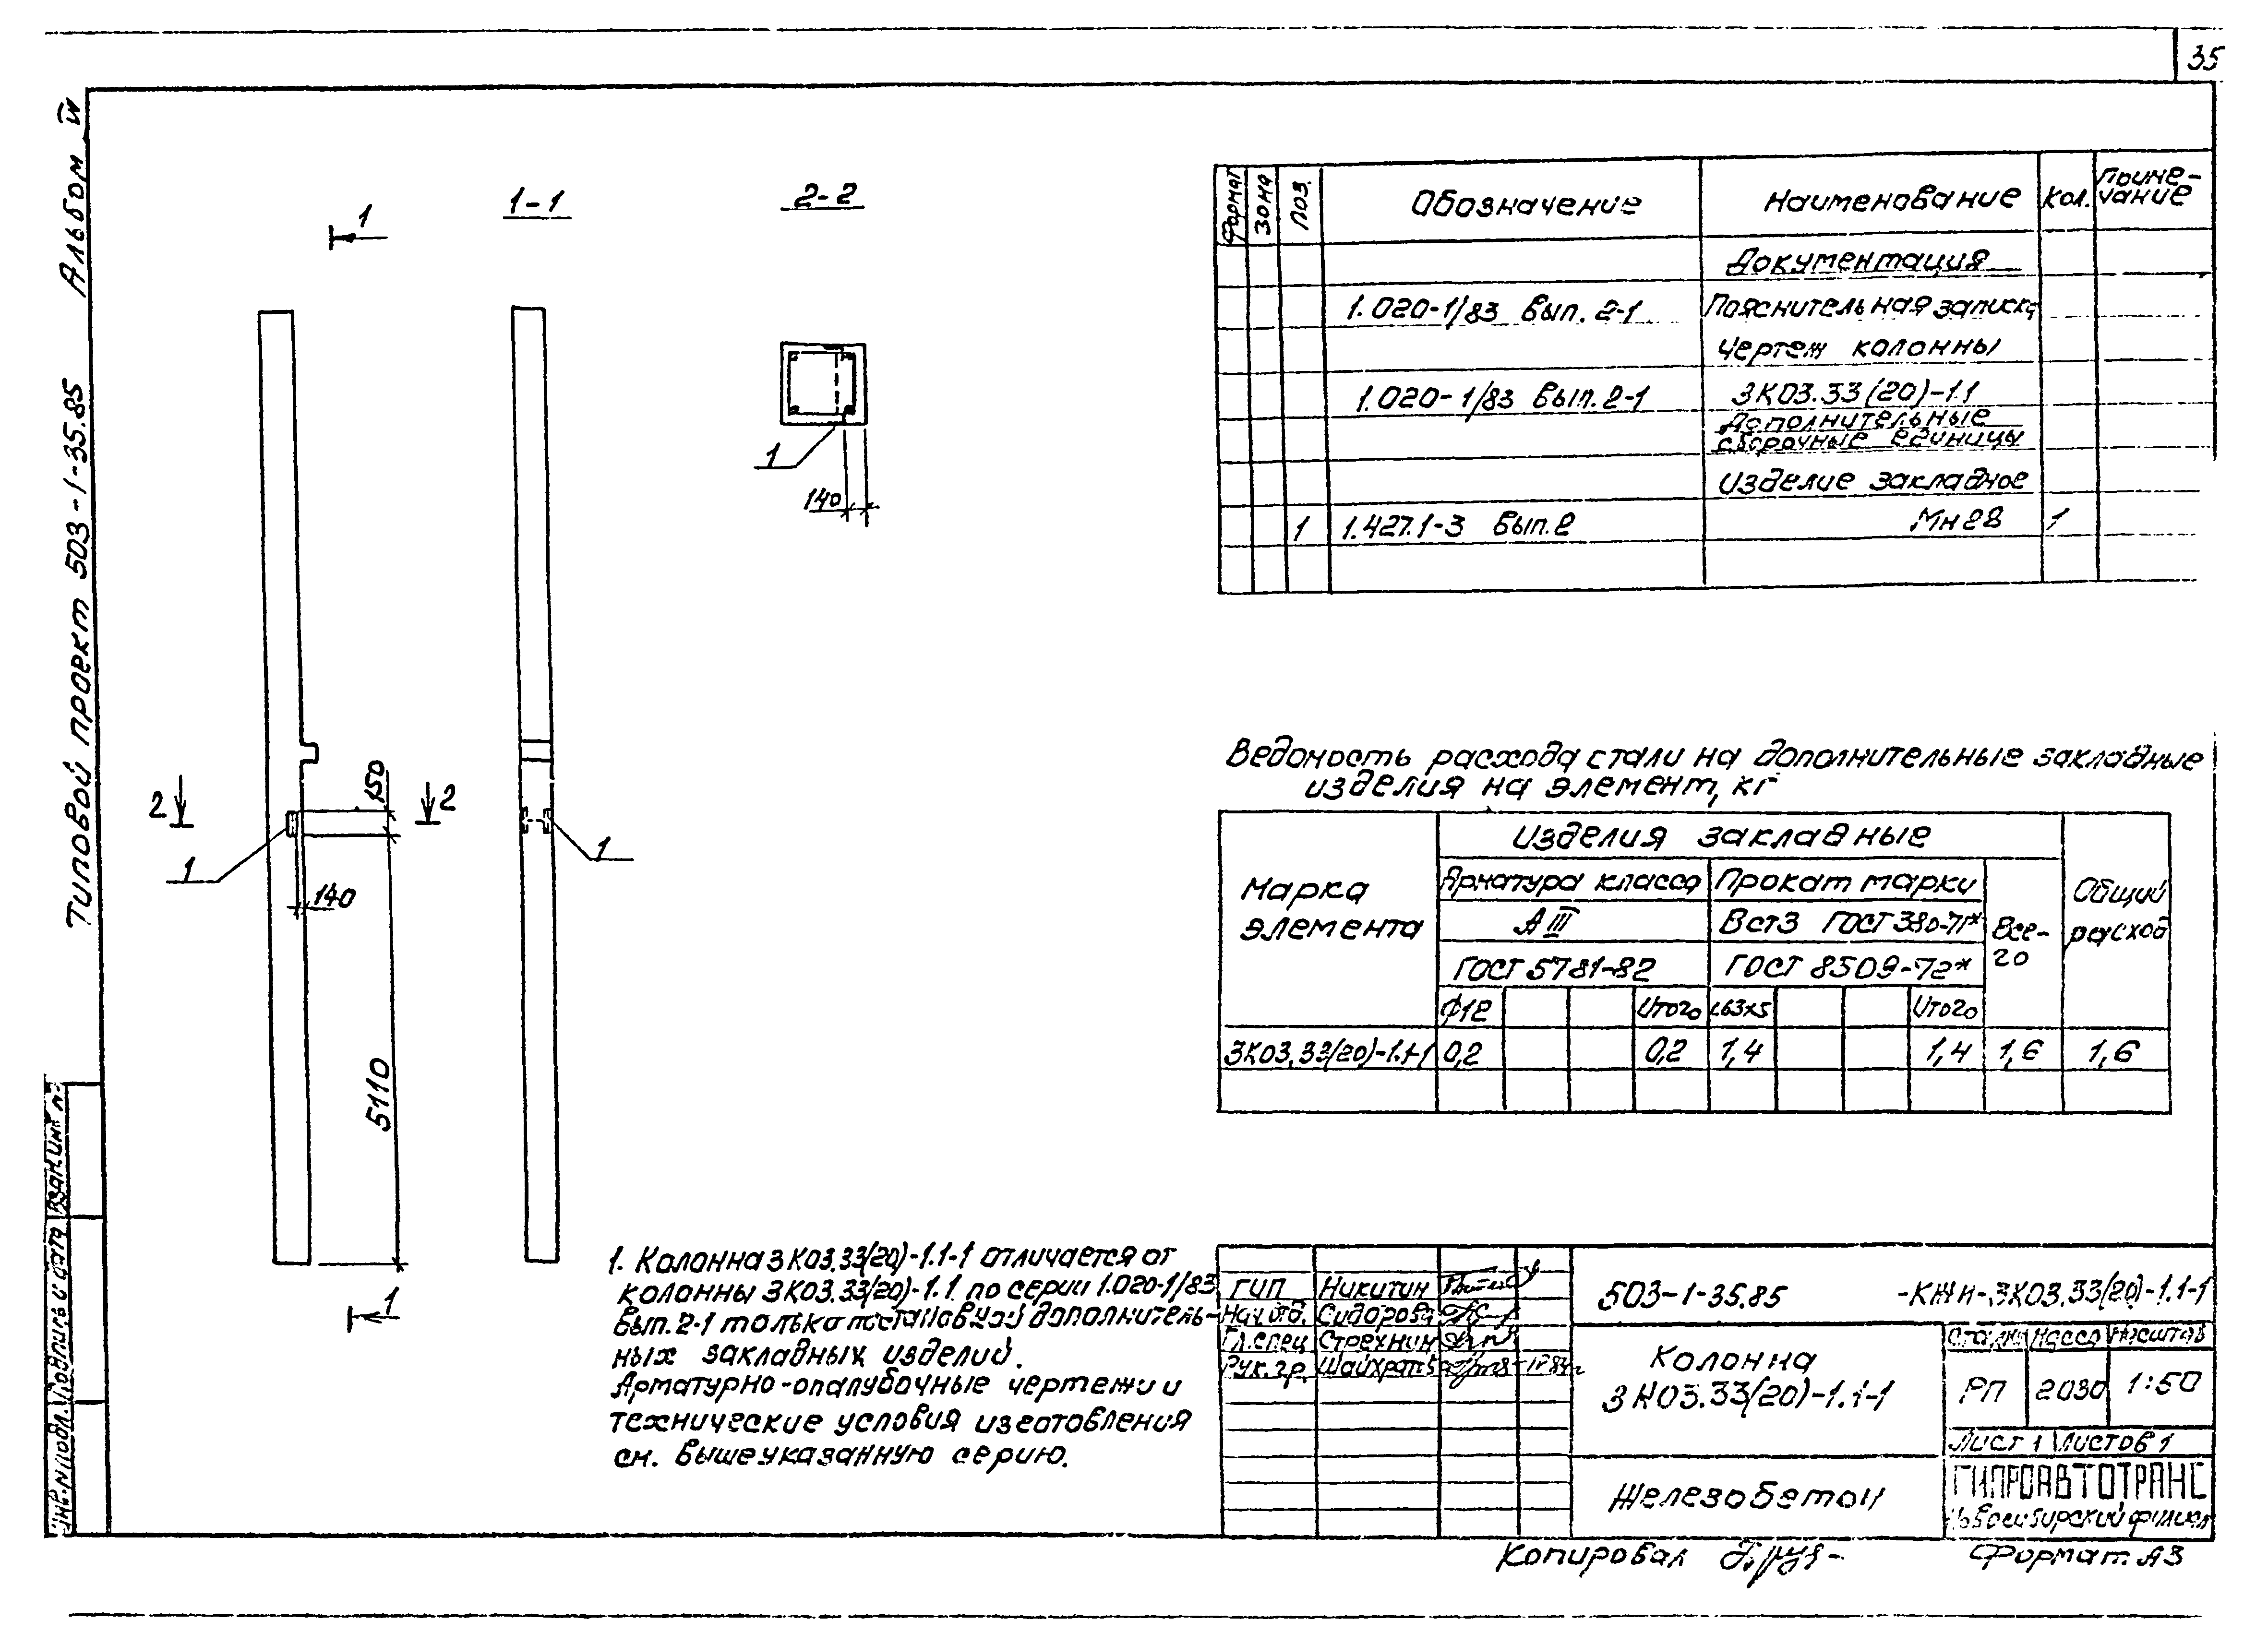 35
Альбом IV
Типовой проект 503-1-35.85
1
1-1
2-2
1
140
150
2
2
1
1
140
5110
1
Формат
Зона
Поз.
Обозначение
Наименование
Кол.
Приме-
чание
Документация
1.020-1/83 Вып. 2-1
Пояснительная записка
Чертеж колонны
1.020-1/83 Вып. 2-1
3К03.33(20)-1.1
Дополнительные
сборочные единицы
Изделие закладное
1
1.427.1-3 Вып. 2
Мн28
1
Ведомость расхода стали на дополнительные закладные
изделия на элемент, кг
Марка
элемента
Изделия закладные
Арматура класса
Прокат марки
Все-
го
Общий
расход
А III
ВСт3 ГОСТ 380-71*
ГОСТ 5781-82
ГОСТ 8509-72*
Ф12
Итого
L63х5
Итого
3К03.33(20)-1.1-1
0,2
0,2
1,4
1,4
1,6
1,6
1. Колонна 3К03.33(20)-1.1-1 отличается от
колонны 3К03.33(20)-1.1 по серии 1.020-1/83
Вып. 2-1 только постановкой дополнитель-
ных закладных изделий.
Арматурно-опалубочные чертежи и
технические условия изготовления
см. вышеуказанную серию.
ГИП Никитин
Нач. отд. Сидорова
Гл. спец Стрехнин
Рук. гр.
503-1-35.85 -КЖИ-3К03.33(20)-1.1-1
Колонна
3К03.33(20)-1.1-1
Стадия Масса Масштаб
РП 2030 1:50
Лист 1 Листов 1
Железобетон
ГИПРОАВТОТРАНС
Новосибирский филиал
Инв. № подл. Подпись и дата Взам. инв. №
Копировал
Формат А3